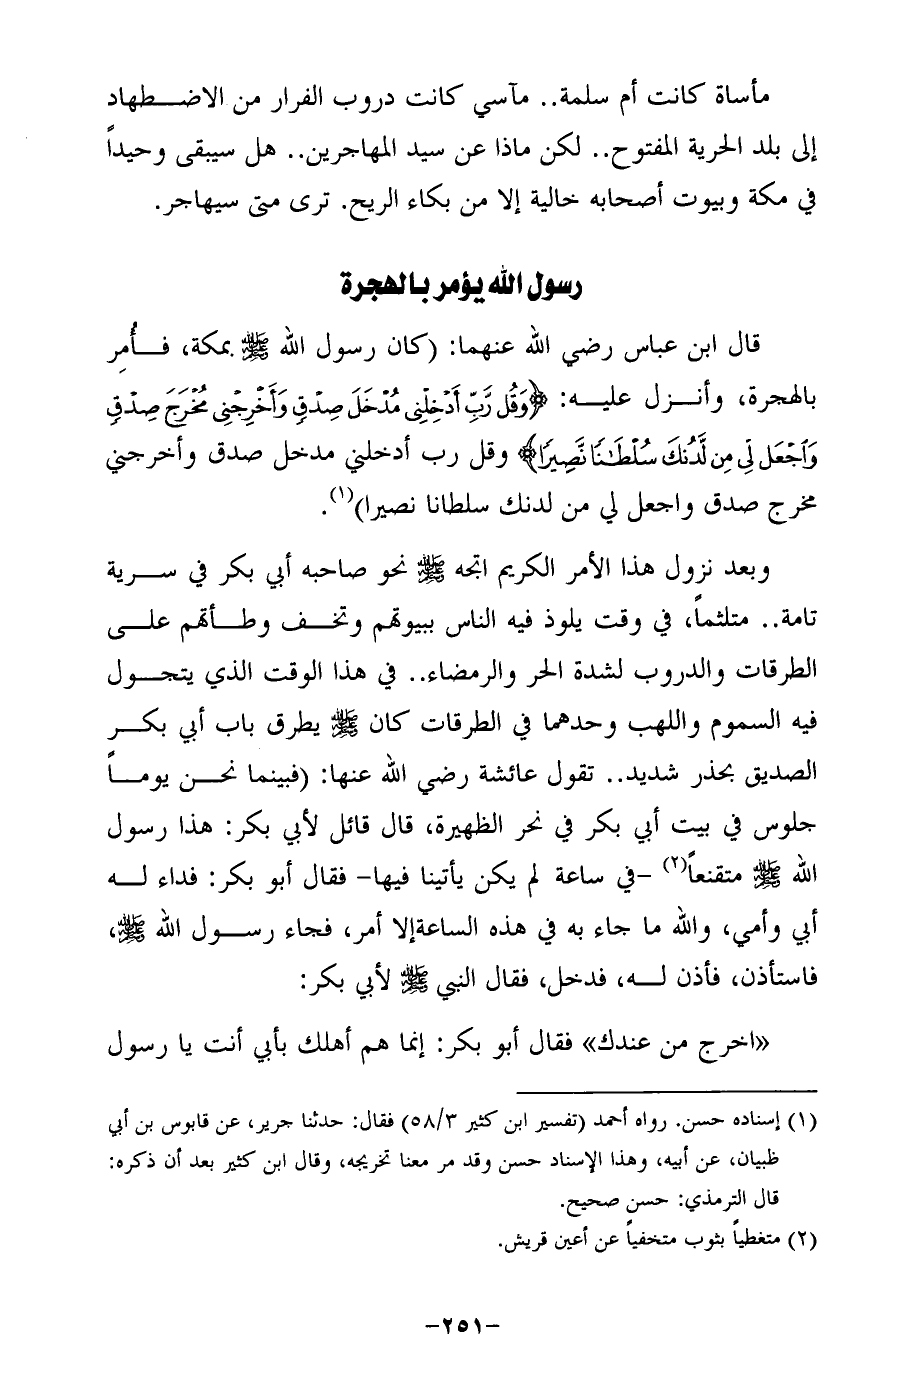 مأساة كانت أم سلمة.. مآسي كانت دروب الفرار من الاضـطهاد
إلى بلد الحرية المفتوح.. لكن ماذا عن سيد المهاجرين.. هل سيبقى وحيداً
في مكة وبيوت أصحابه خالية إلا من بكاء الريح. ترى متى سيهاجر.
رسول الله يؤمر بالهجرة
قال ابن عباس رضي الله عنهما: (كان رسول الله ﷺ بمكة، فـأُمِر
بالهجرة، وأنـزل عليـه: ﴿وَقُل رَّبِّ أَدۡخِلۡنِي مُدۡخَلَ صِدۡقٖ وَأَخۡرِجۡنِي مُخۡرَجَ صِدۡقٖ
وَٱجۡعَل لِّي مِن لَّدُنكَ سُلۡطَٰنٗا نَّصِيرٗا﴾ وقل رب أدخلني مدخل صدق وأخرجني
مخرج صدق واجعل لي من لدنك سلطانا نصيرا)(١).
وبعد نزول هذا الأمر الكريم اتجه ﷺ نحو صاحبه أبي بكر في سـرية
تامة.. متلثماً، في وقت يلوذ فيه الناس ببيوتهم وتخـف وطـأتهم علـى
الطرقات والدروب لشدة الحر والرمضاء.. في هذا الوقت الذي يتحـول
فيه السموم واللهب وحدهما في الطرقات كان ﷺ يطرق باب أبي بكـر
الصديق بحذر شديد.. تقول عائشة رضي الله عنها: (فبينما نحـن يومـاً
جلوس في بيت أبي بكر في نحر الظهيرة، قال قائل لأبي بكر: هذا رسول
الله ﷺ متقنعاً(٢) -في ساعة لم يكن يأتينا فيها- فقال أبو بكر: فداء لـه
أبي وأمي، والله ما جاء به في هذه الساعةإلا أمر، فجاء رسـول الله ﷺ،
فاستأذن، فأذن لـه، فدخل، فقال النبي ﷺ لأبي بكر:
«اخرج من عندك» فقال أبو بكر: إنما هم أهلك بأبي أنت يا رسول
(١) إسناده حسن. رواه أحمد (تفسير ابن كثير ٥٨/٣) فقال: حدثنا جرير، عن قابوس بن أبي
ظبيان، عن أبيه، وهذا الإسناد حسن وقد مر معنا تخريجه، وقال ابن كثير بعد أن ذكره:
قال الترمذي: حسن صحيح.
(٢) متغطياً بثوب متخفياً عن أعين قريش.
-٢٥١-